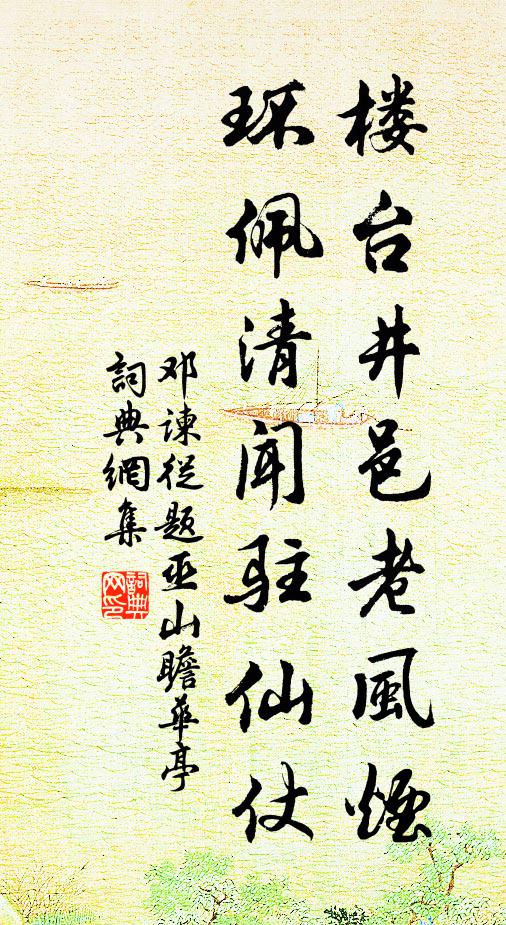 楼台井邑老風煙
环佩清闻驻仙仗
邓谏從题巫山瞻華亭
詞典網集
詞典網印